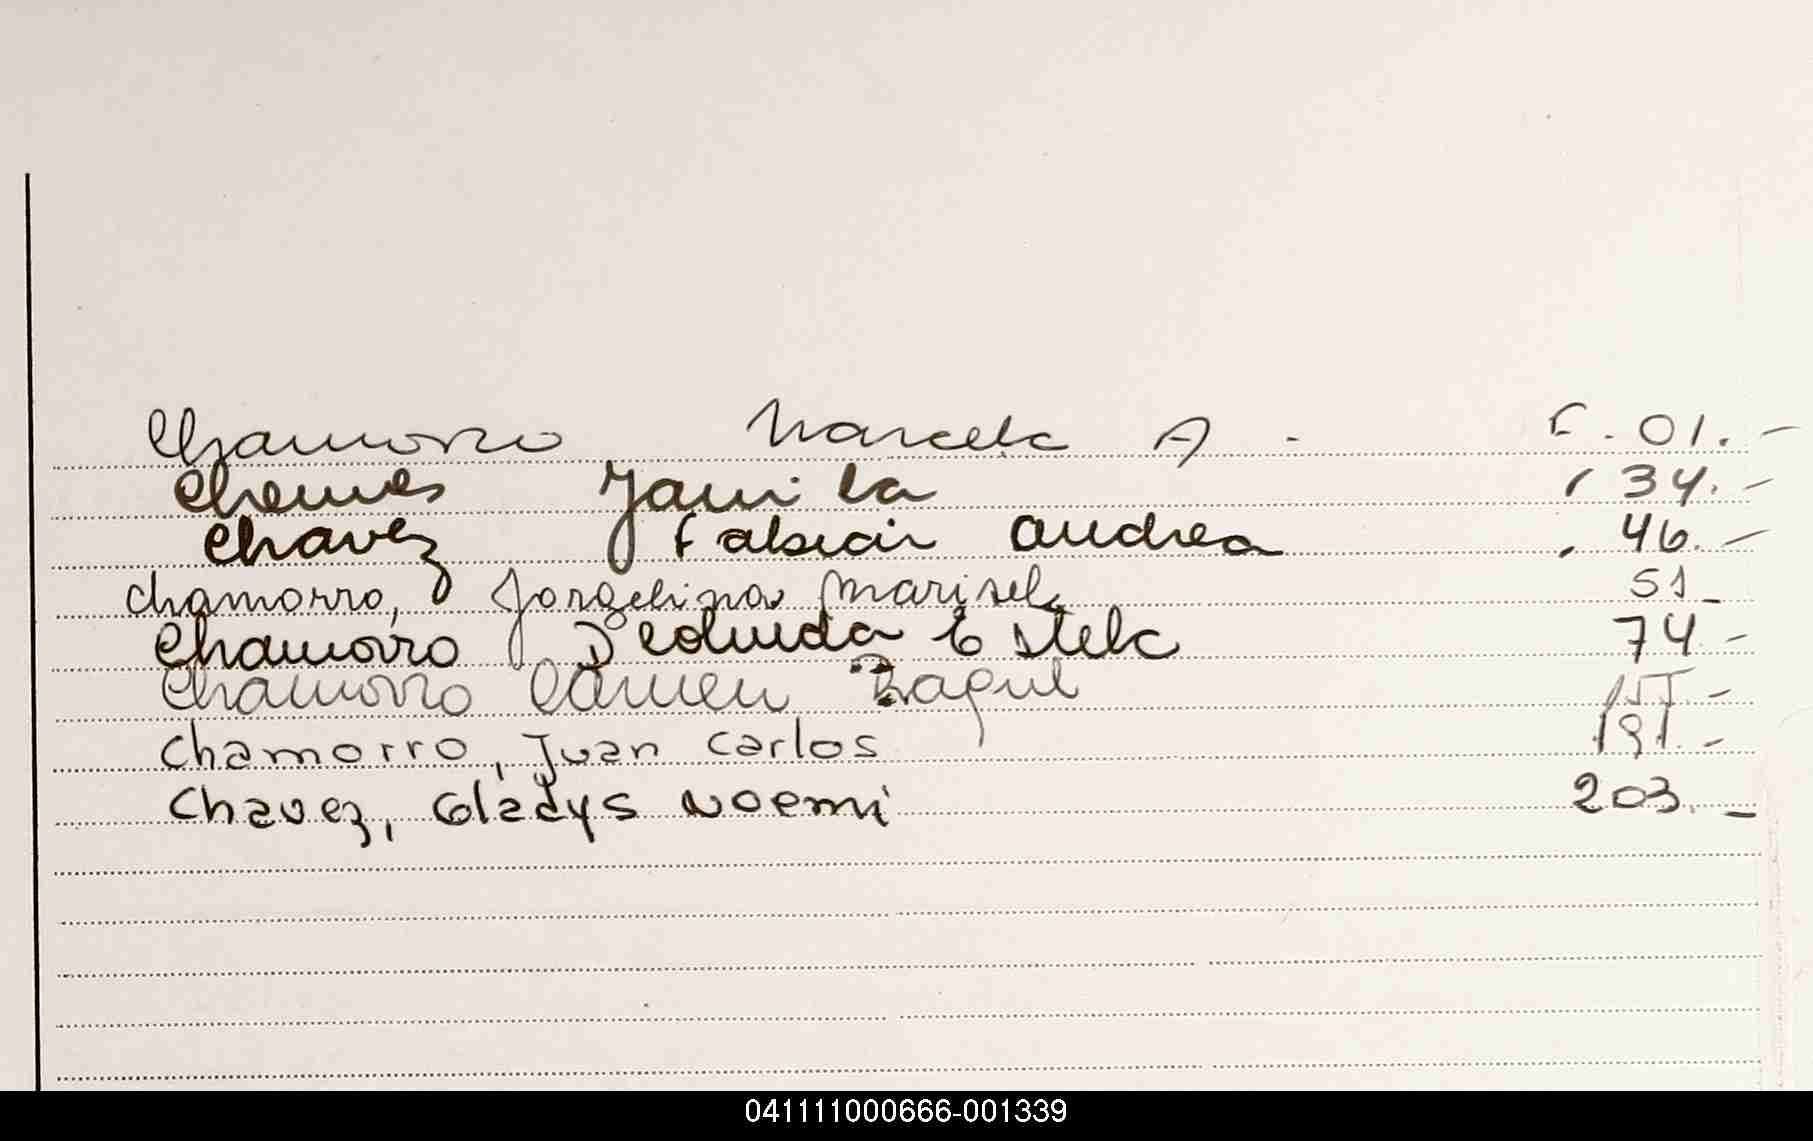 Chamorro Marcela A. F. 01.-
Chemes Jamila " 34.-
Chavez Fabian Andrea " 46.-
Chamorro, Jorgelina Marisel 51-
Chamorro Estela 74.-
Chamorro Carmen Raquel 155.-
Chamorro, Juan Carlos 191.-
Chavez, Gladys Noemi 203.-
041111000666-001339